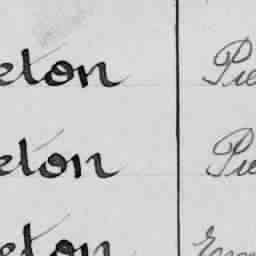 eton Pie
eton Pie
eton